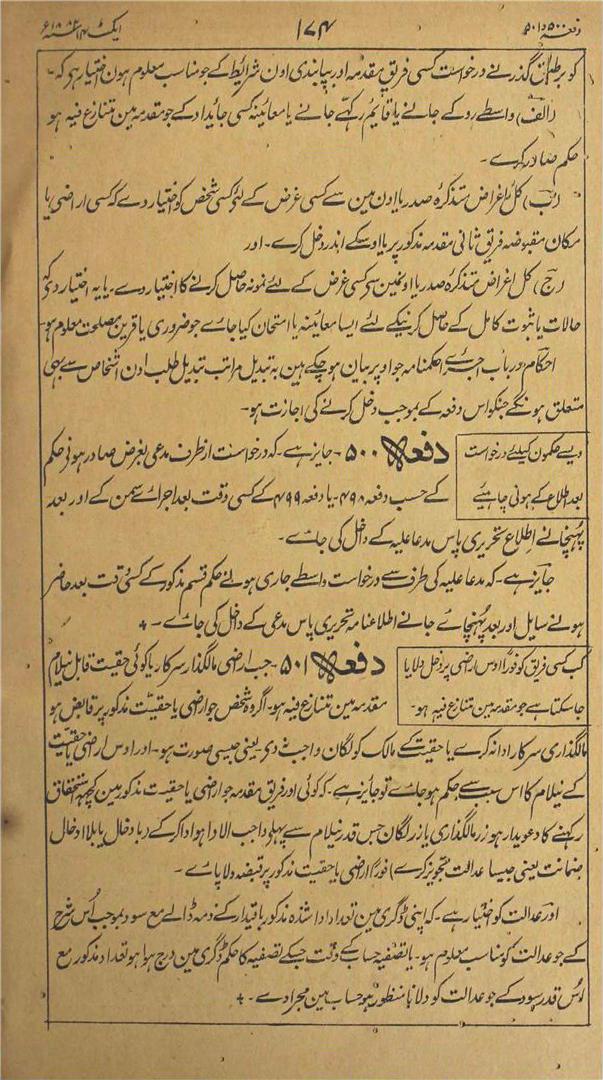 دفعہ ۵۰۰ و ۵۰۱ ۱۷۴ ایکٹ ۱۴ سنہ ۱۸۸۲ع
کو برطبق گذرنے درخواست کسی فریق مقدمہ اور بپابندی اون شرایط کے جو مناسب معلوم ہون اختیار ہی کہ۔
(الف) واسطے روکے جانے یا قایم رکہے جانے یا معائنہ کسی جائیداد کے جو مقدمہ مین متنازع فیہ ہو
حکم صادر کرے۔
(ب) کل اغراض متذکرۂ صدر یا اون مین سے کسی غرض کے لئے کسی شخص کو اختیار دے کہ کسی اراضی یا
مکان مقبوضہ فریق ثانی مقدمہ مذکور پر یا اوسکے اندر دخل کرے۔ اور
(ج) کل اغراض متذکرۂ صدر یا اونمین سی کسی غرض کے لئے نمونہ حاصل کرنے کا اختیار دے۔ یا یہ اختیار دی کہ
حالات یا ثبوت کامل کے حاصل کرنیکے لئے ایسا معائینہ یا امتحان کیا جاے جو ضروری یا قرین مصلحت معلوم ہو۔
احکام درباب اجراے حکمنامہ جو اوپر بیان ہو چکے ہین بہ تبدیل مراتب تبدیل طلب اون اشخاص سے بہی
متعلق ہونگے جنکو اس دفعہ کے بموجب دخل کرنے کی اجازت ہو۔
ویسے حکمون کیلئے درخواست
بعد اطلاع کے ہونی چاہیئے
دفعہ ۵۰۰۔ جایز ہے۔ کہ درخواست از طرف مدعی بغرض صادر ہونی حکم
کے حسب دفعہ ۴۹۸۔ یا دفعہ ۴۹۹ کے کسی وقت بعد اجراے سمن کے اور بعد
پہنچانے اطلاع تحریری پاس مدعا علیہ کے داخل کی جاے۔
جایز ہے۔ کہ مدعا علیہ کی طرف سے درخواست واسطے جاری ہونے حکم قسم مذکور کے کسی وقت بعد حاضر
ہونے سایل اور بعد پہنچاے جانے اطلاعنامہ تحریری پاس مدعی کے داخل کی جاے۔
کب کسی فریق کو فوراً اوس اراضی پر دخل دلایا
جا سکتا ہے جو مقدمہ مین متنازع فیہ ہو۔
دفعہ ۵۰۱۔ جب اراضی مالگذار سرکار یا کوئی حقیت قابل نیلام
مقدمہ مین متنازع فیہ ہو۔ اگر وہ شخص جو اراضی یا حقیت مذکور پر قابض ہو
مالگذاری سرکار ادا نہ کرے یا حقیت کے مالک کو لگان واجب نہ دی۔ یعنی جیسی صورت ہو۔ اور اوس اراضی یا حقیت
کے نیلام کا اس سبب سے حکم ہو جاے تو جایز ہے۔ کہ کوئی اور فریق مقدمہ جو اراضی یا حقیت مذکور مین کچہہ استحقاق
رکہنے کا دعویدار ہو زر مالگذاری یا زر لگان جس قدر نیلام سے پہلے واجب الادا ہو ادا کر کے (با ادخال یا بلا ادخال
ضمانت یعنی جیسا عدالت تجویز کرے) فوراً اراضی یا حقیت مذکور پر قبضہ دلا پاے۔
اور عدالت کو اختیار ہے۔ کہ اپنی ڈگری مین تعداد ادا شدہ مذکور باقیدار کے ذمہ ڈالے مع سود بموجب اُس شرح
کے جو عدالت کو مناسب معلوم ہو۔ یا تصفیہ حساب کے وقت جسکے تصفیہ کا حکم ڈگری مین درج ہوا ہو تعداد مذکور مع
اوس قدر سود کے جو عدالت کو دلانا منظور ہو حساب مین مجرا دے۔